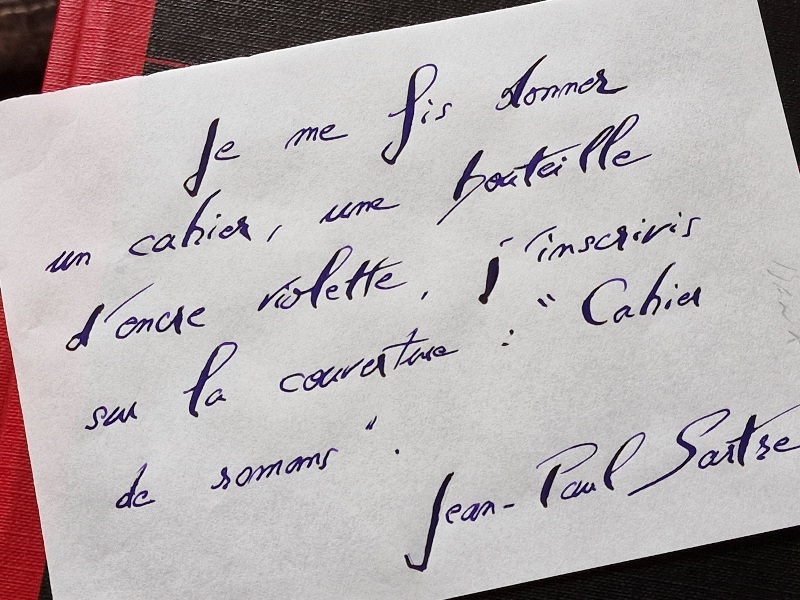 Je me fis donner
un cahier, une bouteille
d'encre violette, j'inscrivis
sur la couverture : "Cahier
de romans".
Jean-Paul Sartre